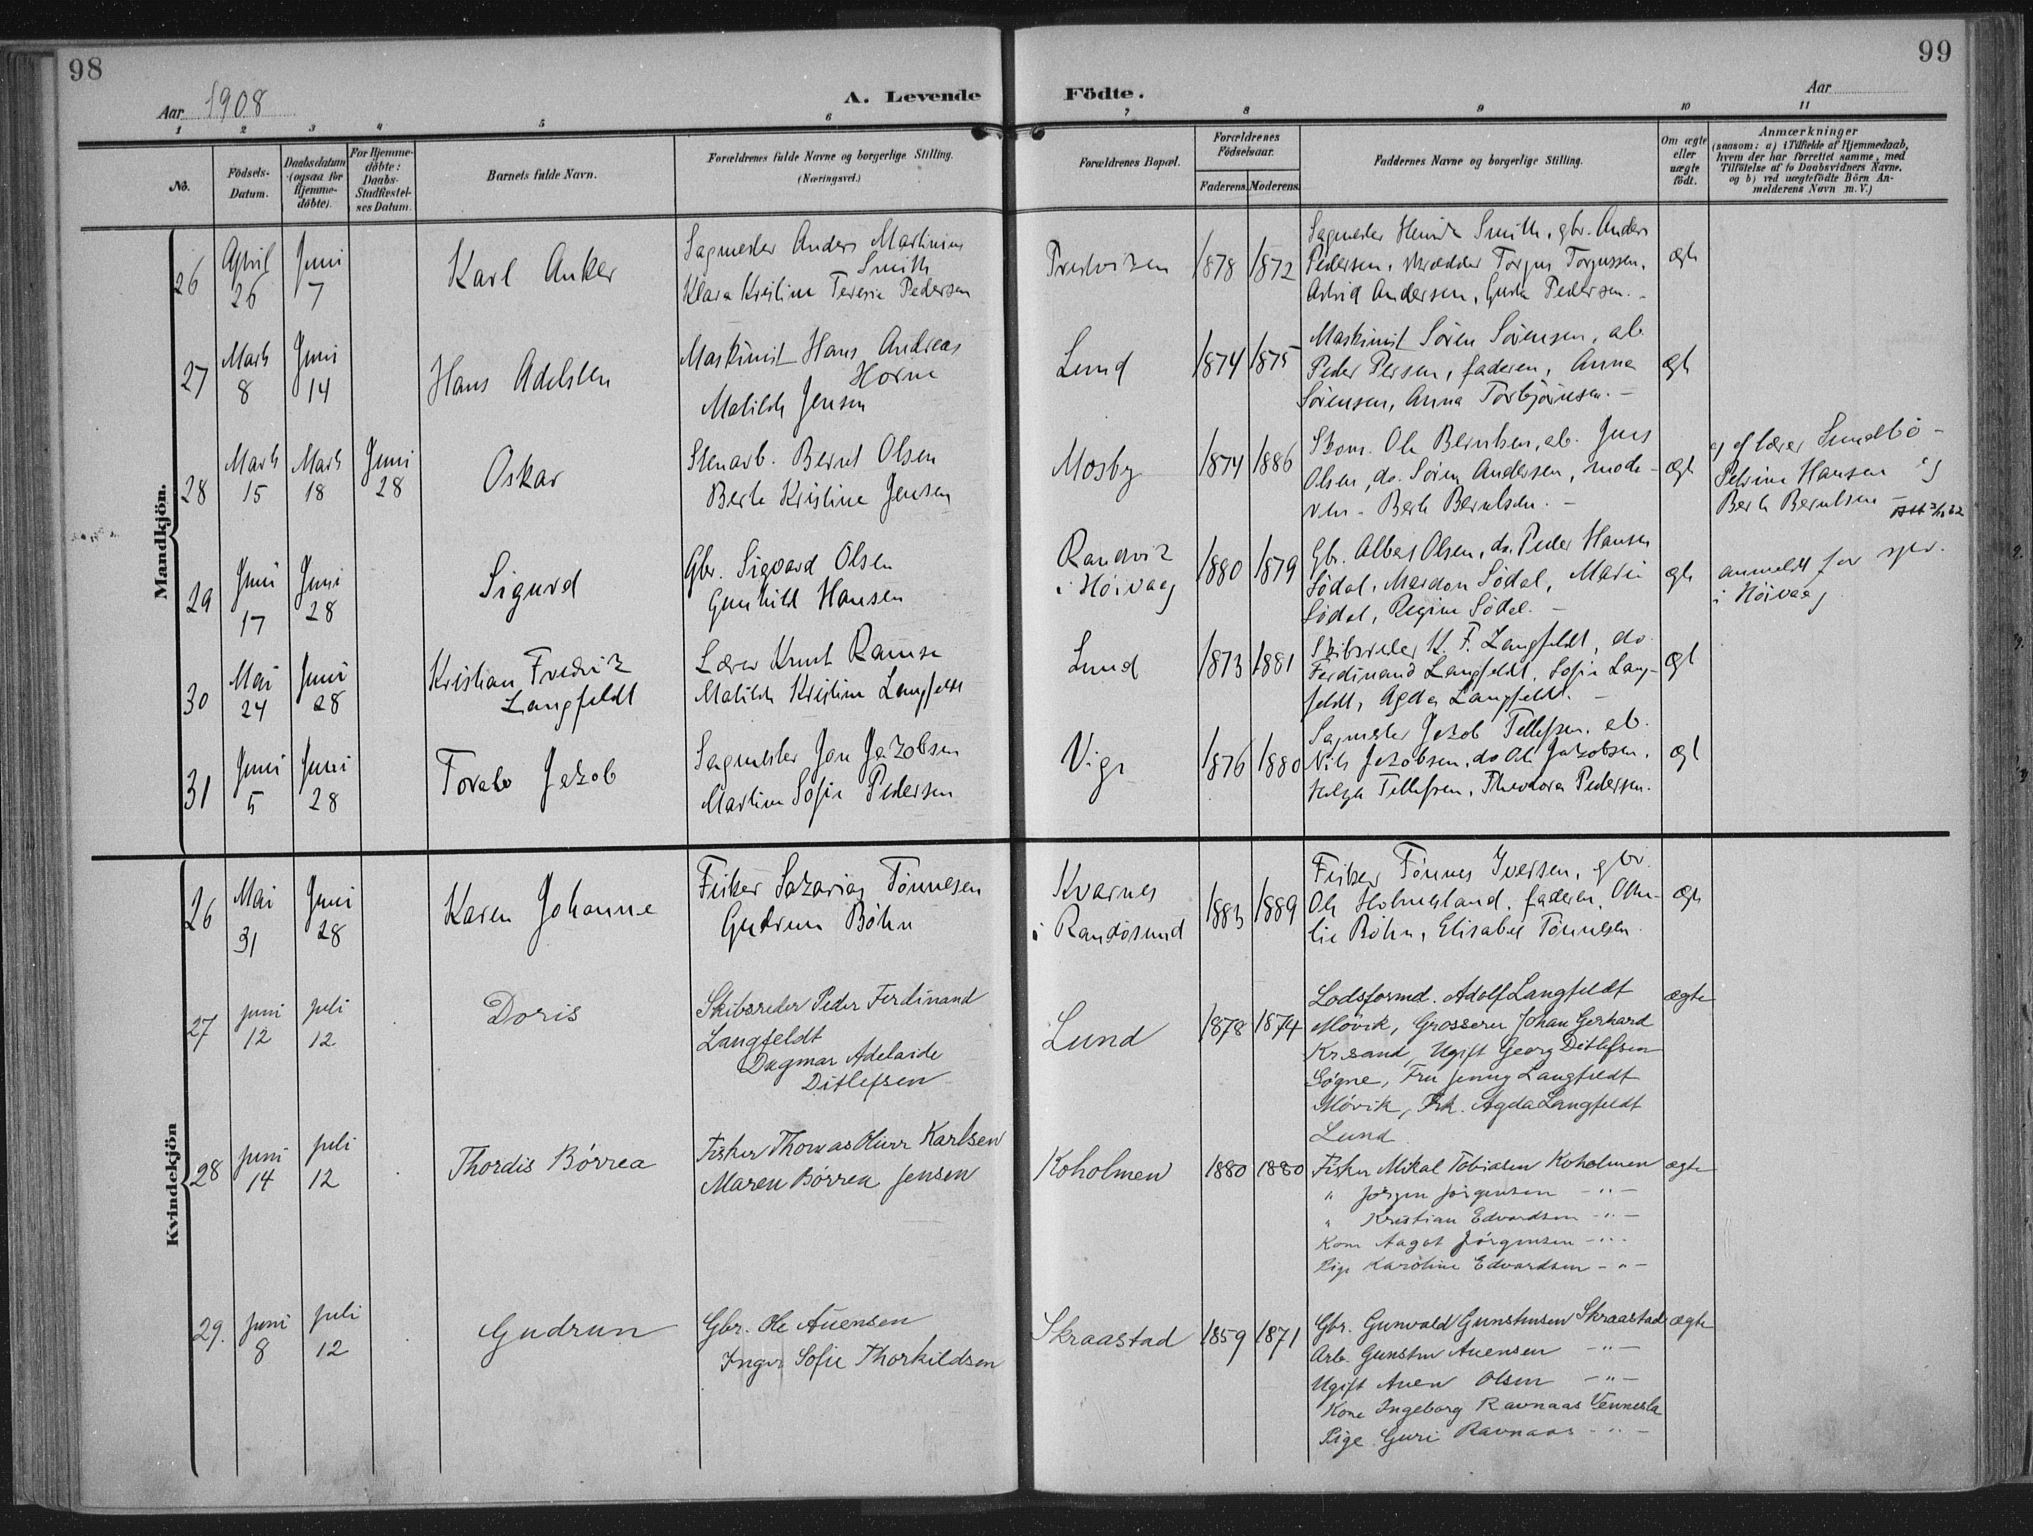 98
99
Aar 1908
A. Levende Födte.
Aar
1 2 3 4 5 6 7 8 9 10 11
No.
Födsels-Datum.
Daabsdatum (ogsaa for Hjemme-döbte).
For Hjemme-döbte: Daabs-Stadfæstel-ses Datum.
Barnets fulde Navn.
Forældrenes fulde Navne og borgerlige Stilling.
(Næringsvei.)
Forældrenes Bopæl.
Forældrenes Födselsaar.
Faderens. Moderens.
Faddernes Navne og borgerlige Stilling.
Om ægte eller uægte födt.
Anmærkninger
(saasom: a) i Tilfælde af Hjemmedaab,
hvem der har forrettet samme, med
Tilföielse af to Daabsvidners Navne,
og b) ved uægtefödte Börn An-
melderens Navn m. V.)
Mandkjön.
26 April 26 Juni 7 Karl Anker
Sagmester Anders Martinius
Smith
Klara Kristine Teresie Pedersen
1878 1872
Sagmester Smith, gbr. Anders
Pedersen, skrædder Torgus Torgussen,
Astrid Andersen, Pedersen. -
ægte
27 Marts 8 Juni 14 Hans Adelsten
Maskinist Hans Andreas
Horne
Matilde Jensen
Lund 1874 1875
Maskinist Sören Sörensen, ab.
Peder Persen, faderen, Anna
Sörensen, Anna Torbjörnsen. -
ægte
28 Marts 15 Marts 18 Juni 28 Oskar
Stenarb. Bernt Olsen
Berte Kristine Jensen
Mosby 1874 1886
Skom. Ole Berntsen, ab. Jens
Olsen, do. Sören Andersen, mode-
ren - Berte Berntsen. -
ægte
af lærer Sundtbö -
Petrine Hansen og
Berte Berntsen -
29 Juni 17 Juni 28 Sigurd
Gbr. Sigvard Olsen
Gunhild Hansen
Randvik
i Höivaag
1880 1879
Gbr. Albert Olsen, do. Peder Hansen
Södal, Mardon Södal, Marie
Södal, Regine Södal. -
ægte
anmeldt for spr.
i Höivaag
30 Mai 24 Juni 28 Kristian Fredrik
Langfeldt
Lærer Knut Ramse
Matilde Kristine Langfeldt
Lund 1873 1881
Skibsreder K. F. Langfeldt, do
Ferdinand Langfeldt, Sofie Lang-
feldt, Agda Langfeldt. -
ægte
31 Juni 5 Juni 28 Jakob
Sagmester Jakobsen
Martine Sofie Pedersen
Vige 1876 1880
Sagmester Jakob Tellefsen, ab.
Nils Jakobsen, do Ole Jakobsen,
Helga Tellefsen, Theodora Pedersen.
ægte
Kvindekjön
26 Mai 31 Juni 28 Karen Johanne
Fisker Sakarias Tönnesen
Gudrun Böhn
Kvarnes
i Randösund
1883 1889
Fisker Tönnes Iversen, gbr.
Ole Holmesland, faderen, Othe-
lie Böhn, Elisabet Tönnesen.
ægte
27 juni 12 juli 12 Doris
Skibsreder Peder Ferdinand
Langfeldt
Dagmar Adelaide
Ditlefsen
Lund 1878 1874
Lodsformd. Adolf Langfeldt
Mövik, Grosserer Johan Gerhard
Krsand, Ugift Georg Ditlefsen
Søgne, Fru Jenny Langfeldt
Mövik, Frk. Agda Langfeldt
Lund
ægte
28 juni 14 juli 12 Thordis Börrea
Fisker Thomas Oliver Karlsen
Maren Börrea Jensen
Koholmen 1880 1880
Fisker Mikal Tobiasen Koholmen
" Jörgen Jörgensen - " -
" Kristian Edvardsen - " -
Kone Aagot Jörgensen - " -
Pige Karoline Edvardsen - " -
ægte
29. juni 8 juli 12 Gudrun
Gbr. Ole Auensen
Inger Sofie Thorkildsen
Skraastad 1859 1871
Gbr. Gunvald Gunstensen Skraastad
Arb. Gunsten Auensen - " -
Ugift Auen Olsen - " -
Kone Ingeborg Ravnaas Vennesla
Pige Guri Ravnaas - " -
ægte